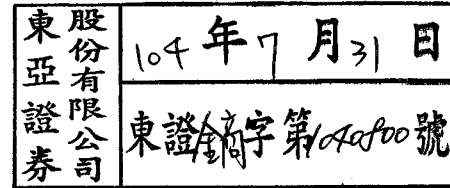 東亞證券
股份有限公司
104年7月31日
東證鏑字第1040800號